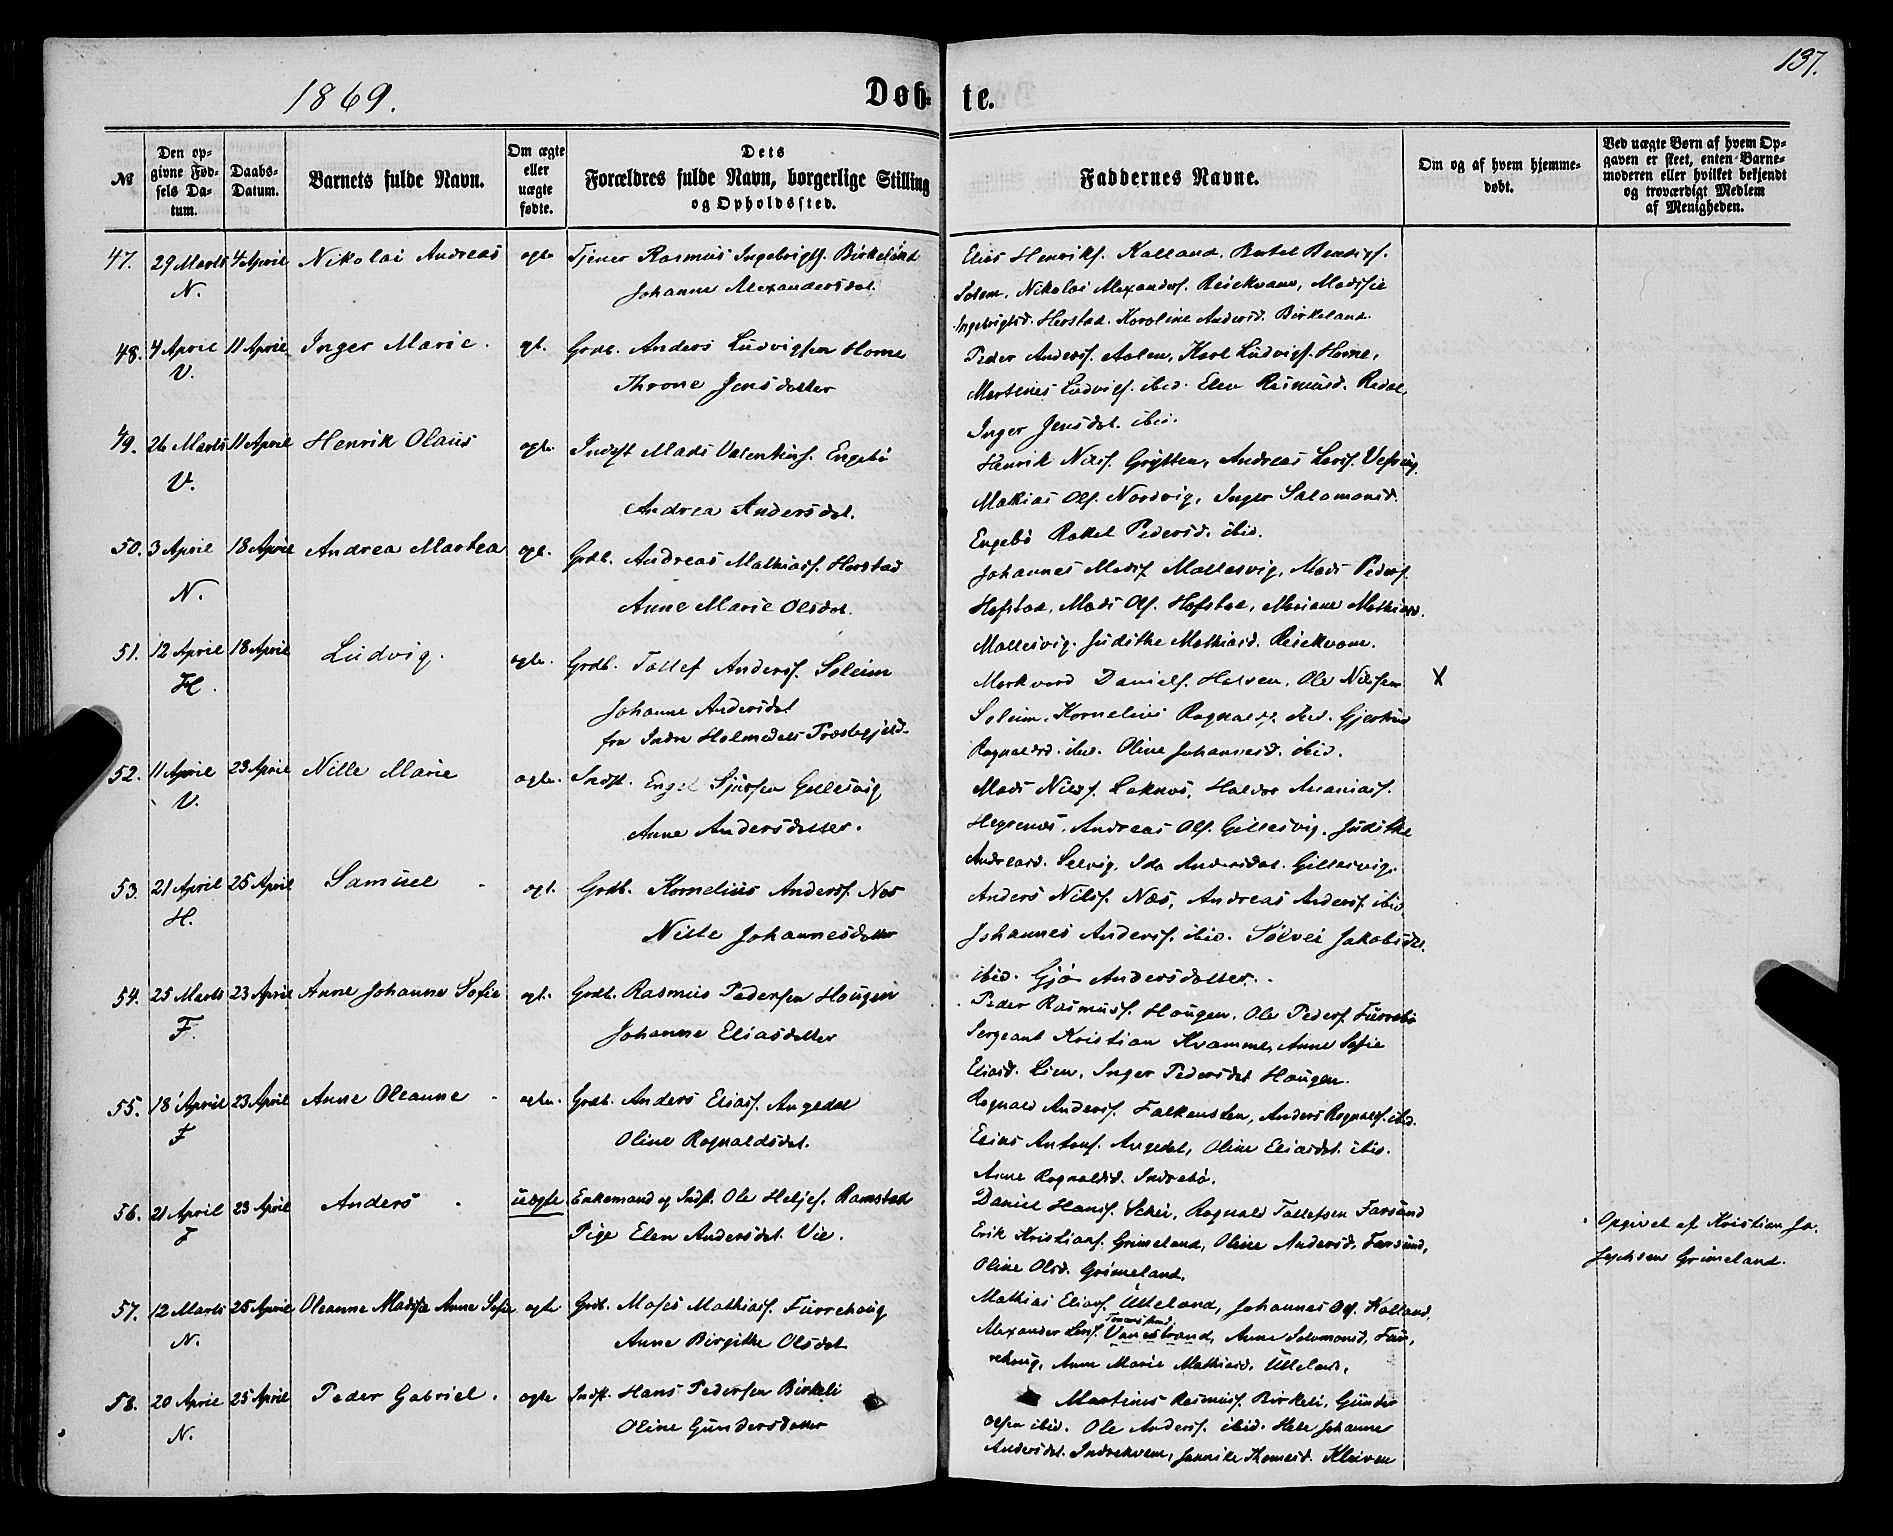 137.
1869.
Døb- te.
№
Den opgivne Fødsels Datum.
Daabs-Datum.
Barnets fulde Navn.
Om ægte eller uægte fødte.
Dets Forældres fulde Navn, borgerlige Stilling og Opholdssted.
Faddernes Navne.
Om og af hvem hjemmedøbt.
Ved uægte Børn af hvem Opgaven er skeet, enten Barnemoderen eller hvilket bekjendt og troværdigt Medlem af Menigheden.
47. 29 Marts 4 April Nikolai Andreas ægte Tjener Rasmus Ingebrigts. Birkeland
N. Johanne Alexandersdat.
Elias Henriks. Kalland, Bertel Bendixs.
Solem, Nikolai Alexanders. Reickvam, Madssie
Ingebrigtsd. Herstad. Karoline Andersd. Birkeland
48. 4 April 11 April Inger Marie. ægt. Grdb. Anders Ludvigsen Horne
V. Throne Jensdatter
Peder Anders. Aalen, Karl Ludvigs. Horne,
Martines Ludvigs. ibid. Elen Rasmusd. Redal,
Inger Jensdat. ibid.
49. 26 Marts 11 April Henrik Olaus ægte Indst Mads Valentins. Engebø
V. Andrea Andersdat.
Henrik Nils. Grytten, Andreas Lars. Vefring,
Mathias Ols. Nordvig, Inger Salomonsd.
Engebø Rakel Pedersd. ibid.
50. 3 April 18 April Andrea Martea ægt. Grdb. Andreas Mathias. Horstad
N. Anne Marie Olsdat.
Johannes Mads. Mallesvig, Mads Peders.
Hafstad, Mads Ols. Hafstad, Mariane Mathiasd.
Mallesvig. Judithe Mathiasd. Reickvam.
51. 12 April 18 April Ludvig. ægte. Grdb. Tollef Anders. Soleim
H. Johanne Andersdat
fra Indre Holmedals Præstegjeld.
Markvard Daniels. Halsen, Ole Nilssen X
Soleim, Kornelius Ragnalds. ibid. Gjertrud
Ragnaldsd. ibid. Oline Johannesd. ibid.
52. 11 April 23 April Nille Marie ægte. Indst. Engel Sjursen Gillesvig
V. Anne Andersdatter.
Mads Nils. Laknes, Haldor Ananias.
Hegrenæs, Andreas Ols. Gillesvig, Judithe
Andreasd. Selvig, Ida Andersdat. Gillesvig.
53. 21 April 25 April Samuel ægt. Grdb. Kornelius Anders. Næs
H. Nille Johannesdatter
Anders Nils. Næs, Andreas Anders. ibid
Johannes Anders. ibid. Sølvei Jakobsdat.
ibid. Gjø Andersdatter.
54. 25 Marts 23 April Anne Johanne Sofie ægt. Grdb. Rasmus Pedersen Hougen
F. Johanne Eliasdatter
Peder Rasmus. Hougen, Ole Peders. Furrebø
Sergeant Kristian Kvamme, Anne Sofie
Eliasd. Lien, Inger Pedersdat Hougen.
55. 18 April 23 April Anne Oleanne ægte. Grdb. Anders Elias. Angedal
F Oline Ragnaldsdat.
Ragnald Anders. Falkensten, Anders Ragnalds. ibid.
Elias Antons. Angedal, Oline Eliasdat. ibid.
Anne Ragnaldsd. Indrebø.
56. 21 April 23 April Anders uægte Enkemand og Indst. Ole Heljes. Ramstad
F Pige Elen Andersdat. Vie.
Daniel Hans. Schei, Ragnald Tollefsen Farsund
Erik Kristians. Grimeland, Oline Andersd. Farsund,
Oline Olsd. Grimeland.
Opgivet af Kristian Jo-
sephsen Grimeland.
57. 12 Marts 25 April Oleanne Madssia Anne Sofie ægte Grdb. Moses Mathias. Furrehoug
N. Anne Birgithe Olsdat
Mathias Elias. Ulleland, Johannes Ols. Kalland,
Alexander Lars. Vanestrand, Anne Salomonsd. Fur-
rehoug, Anne Marie Mathiasd. Ulleland.
58. 20 April 25 April Peder Gabriel. ægte Indst. Hans Pedersen Birkeli
N. Oline Gundersdatter
Martinus Rasmus. Birkeli, Gunder
Olsen ibid. Ole Anders. ibid. Hele Johanne
Andersdat. Indrekvam, Jannike Thomasd. Kleiven